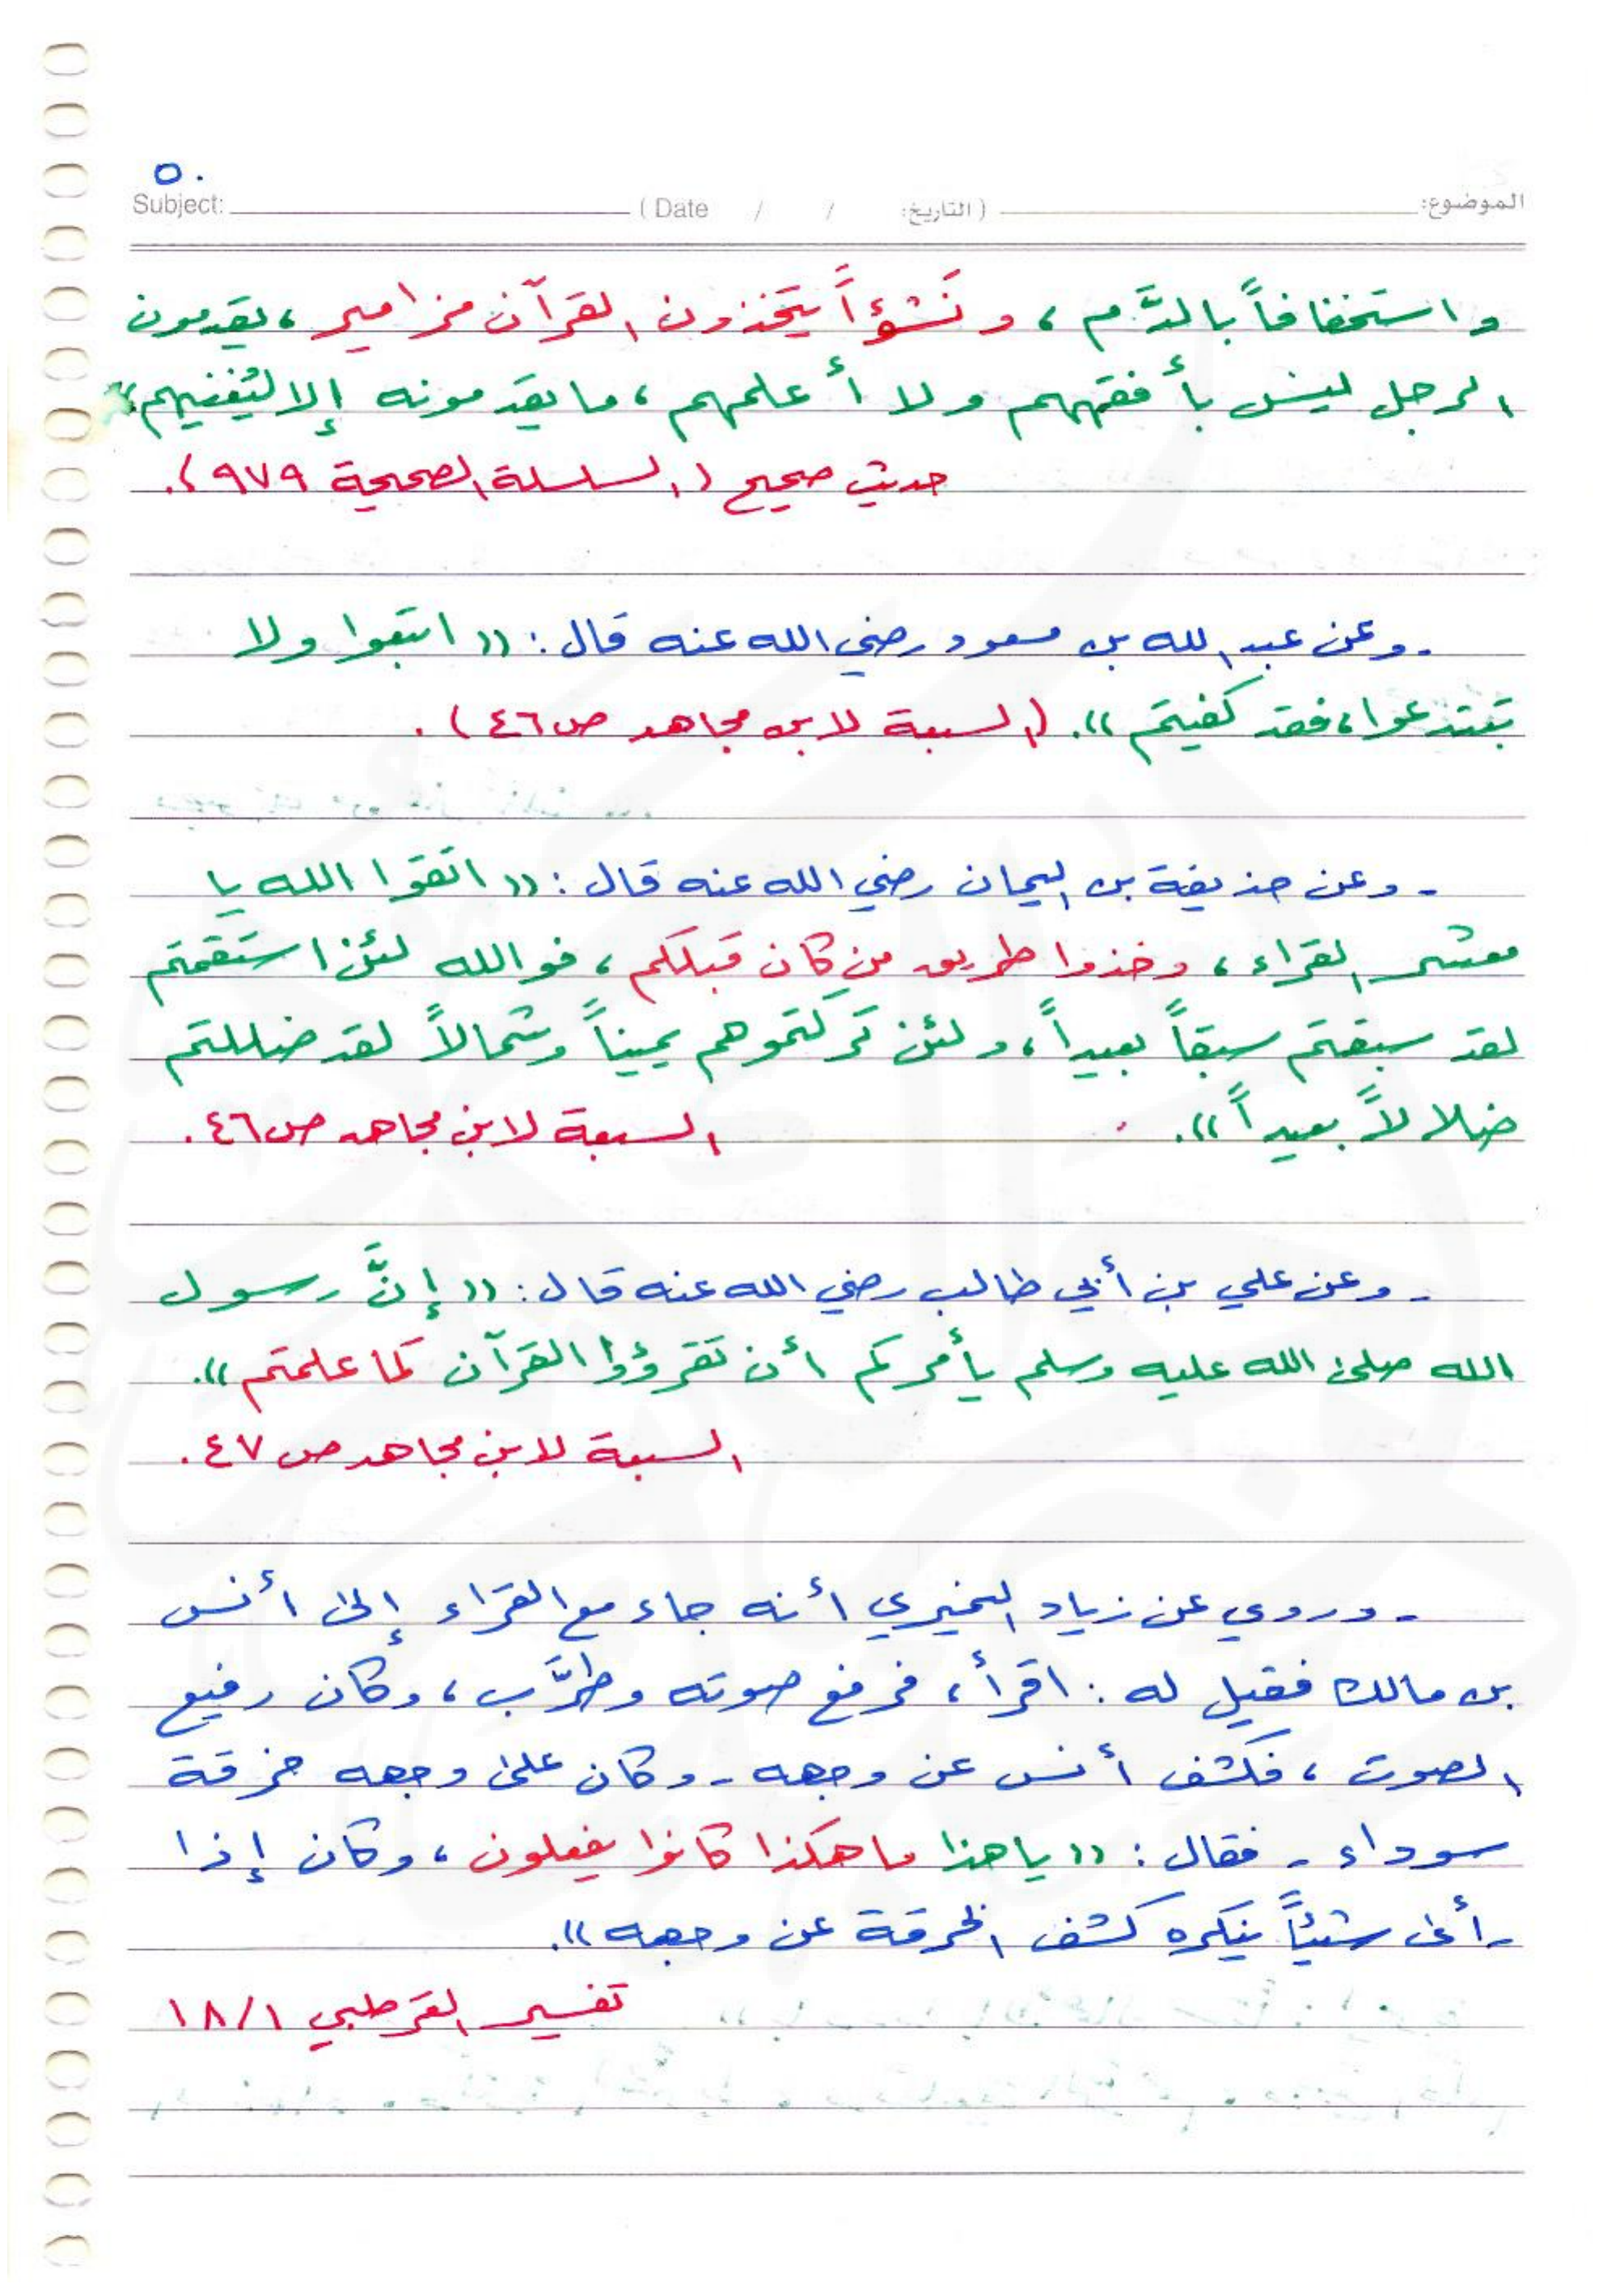 ٥٠
Subject: ( Date / / التاريخ: ) الموضوع:
واستخفافاً بالدَّم ، ونَشْؤاً يتخذون القرآن مزامير ، يقدمون
الرجل ليس بأفقههم ولا أعلمهم ، ما يقدمونه إلا ليُغنيهم»
حديث صحيح (السلسلة الصحيحة ٩٧٩).
- وعن عبد الله بن مسعود رضي الله عنه قال : «اتبعوا ولا
تبتدعوا ، فقد كفيتم» . (السبعة لابن مجاهد ص ٤٦) .
- وعن حذيفة بن اليمان رضي الله عنه قال : «اتقوا الله يا
معشر القراء ، وخذوا طريق من كان قبلكم ، فوالله لئن استقمتم
لقد سبقتم سبقاً بعيداً ، ولئن تركتموهم يميناً وشمالاً لقد ضللتم
ضلالاً بعيداً» . السبعة لابن مجاهد ص ٤٦ .
- وعن علي بن أبي طالب رضي الله عنه قال : «إنَّ رسول
الله صلى الله عليه وسلم يأمركم أن تقرؤوا القرآن كما علمتم» .
السبعة لابن مجاهد ص ٤٧ .
- وروي عن زياد النميري أنه جاء مع القراء إلى أنس
بن مالك فقيل له : اقرأ ، فرفع صوته وطرَّب ، وكان رفيع
الصوت ، فكشف أنس عن وجهه - وكان على وجهه خرقة
سوداء - فقال : «يا هذا ما هكذا كانوا يفعلون ، وكان إذا
رأى شيئاً ينكره كشف الخرقة عن وجهه» .
تفسير القرطبي ١/١٨